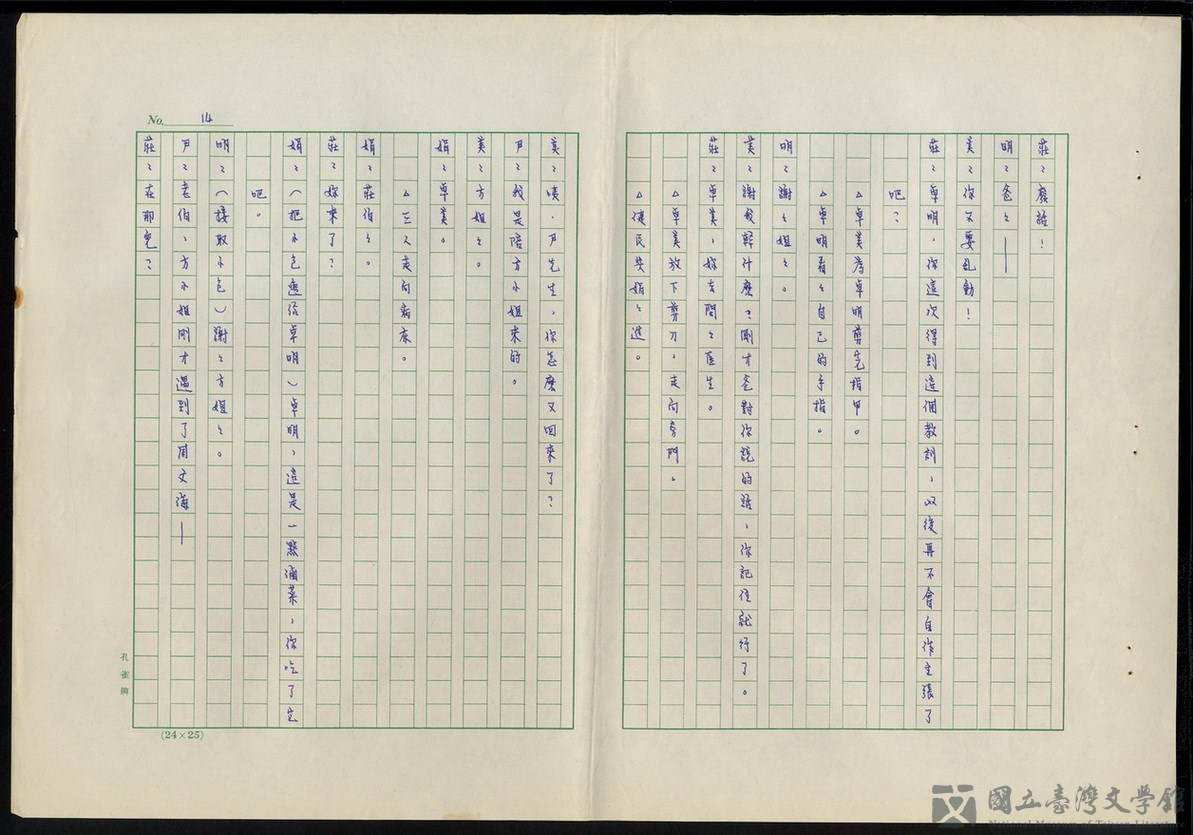 莊：廢話！
明：爸々——
美：你不要亂動！
莊：卓明，你這次得到這個教訓，以後再不會自作主張了
吧？
△卓美為卓明剪完指甲。
△卓明看々自己的手指。
明：謝々姐々。
美：謝我幹什麼？剛才爸對你說的話，你記住就行了。
莊：卓美，妳去問々医生。
△卓美放下剪刀，走向房門。
△健民與娟々進。
No. 14
美：咦，尹先生，你怎麼又回來了？
尹：我是陪方小姐來的。
美：方姐々。
娟：卓美。
△三人走向病床。
娟：莊伯々。
莊：妳來了？
娟：（把小包遞給卓明）卓明，這是一點滷菜，你吃了它
吧。
明：（接取小包）謝々方姐々。
尹：老伯，方小姐剛才遇到了周文海——
莊：在那兒？
孔雀牌
(24×25)
國立臺灣文學館
National Museum of Taiwan Literature